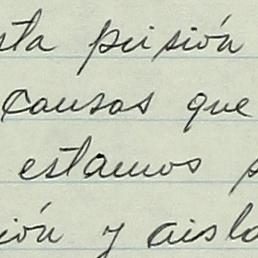 sta prisión
causas que
estamos
ión y aisla